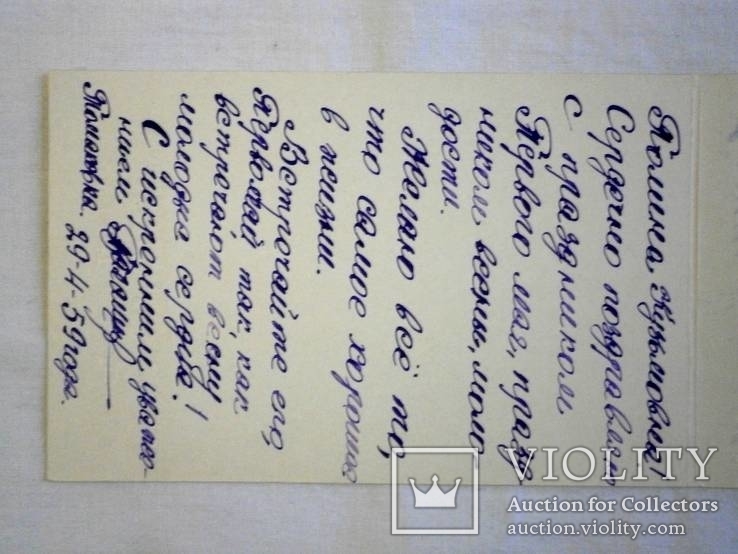 Полина Кузьмовна!
Сердечно поздравляю
с праздником
Первого мая, празд
ником весны, моло
дости.
Желаю всё то,
что самое хорошее
в жизни.
Встречайте его,
Первомай, так, как
встречают весну
молодые сердце!
С искренним уваже-
нием
29-4-59 года.
VIOLITY
Auction for Collectors
auction.violity.com